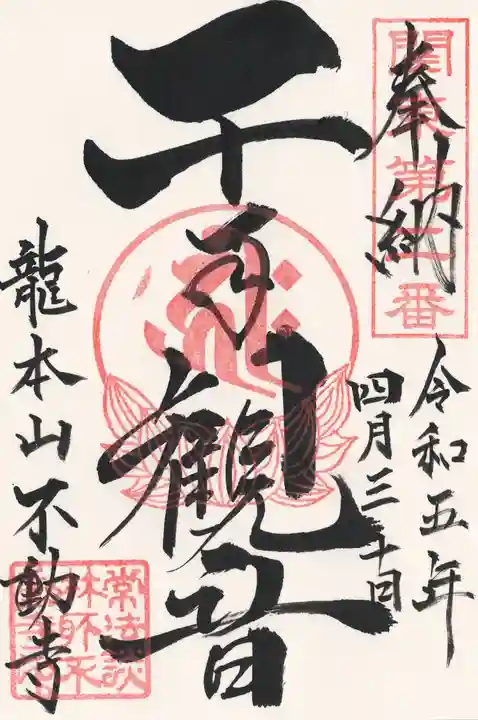 奉納
関東第二番
令和五年
四月三十日
千手観音
龍本山不動寺
常法談